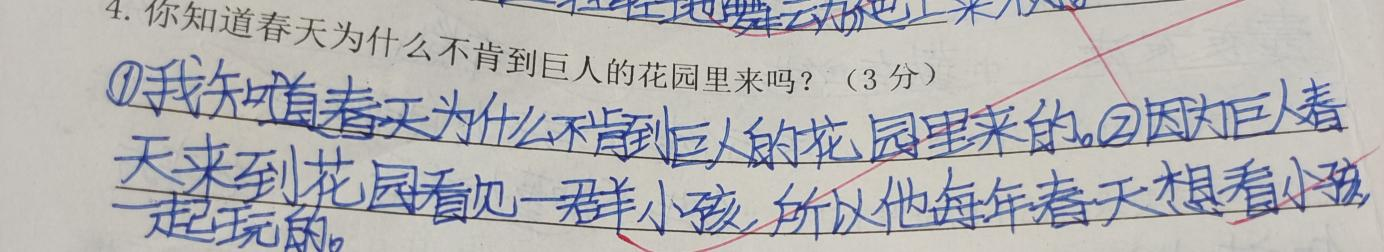 4. 你知道春天为什么不肯到巨人的花园里来吗？（3 分）
①我知道春天为什么不肯到巨人的花园里来的。②因为巨人春
天来到花园看见一群小孩，所以他每年春天想看小孩
一起玩的。